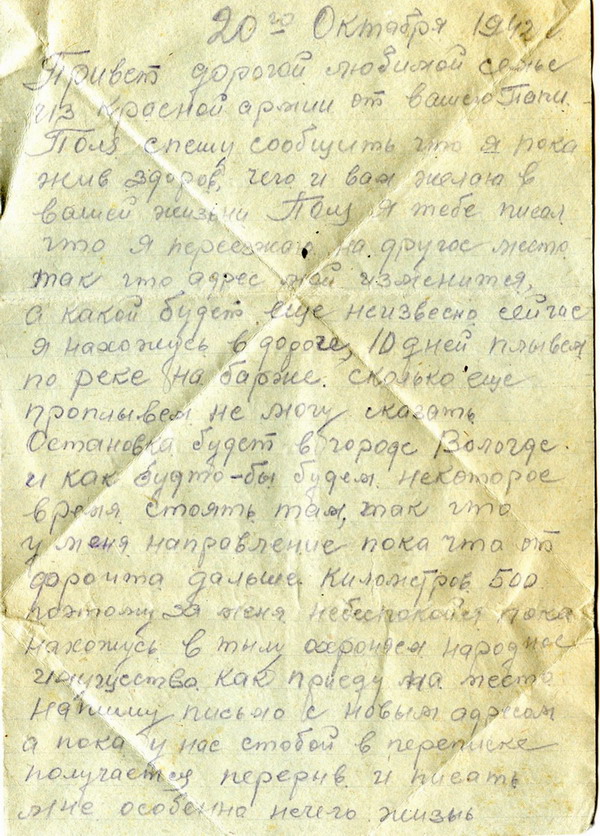 20го Октября 1942г.
Привет дорогой любимой семье
из красной армии от вашего Папи
Поля спешу сообщить что я пока
жив здоров, чего и вам желаю в
вашей жизни Поля Я тебе писал
что я переезжаю на другое место
так что адрес мой изменится,
а какой будет еще неизвесно сейчас
я нахожусь в дороге, 10 дней плывем
по реке на барже. сколько еще
проплывем не могу сказать
Остановка будет в городе Вологде
и как будто-бы будем некоторое
время стоять там, так что
у меня направление пока что от
фронта дальше километров 500
поэтому за меня небеспокойся пока
нахожусь в тылу охроняем народное
имущество как приеду на место
напишу письмо с новым адресом
а пока у нас стобой в переписке
получается перерыв и писать
мне особенна нечего жизнь